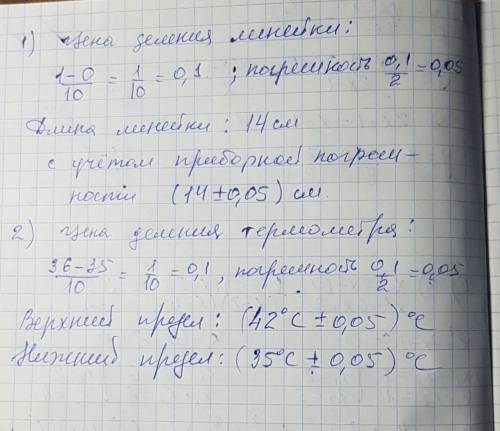 1) Цена деления линейки:
1-0/10 = 1/10 = 0,1 ; погрешность 0,1/2 = 0,05
Длина линейки: 14 см
с учётом приборной погреш-
ности (14 ± 0,05) см.
2) Цена деления термометра:
36-35/10 = 1/10 = 0,1, погрешность 0,1/2 = 0,05
Верхний предел: (42°C ± 0,05)°C
Нижний предел: (35°C ± 0,05)°C